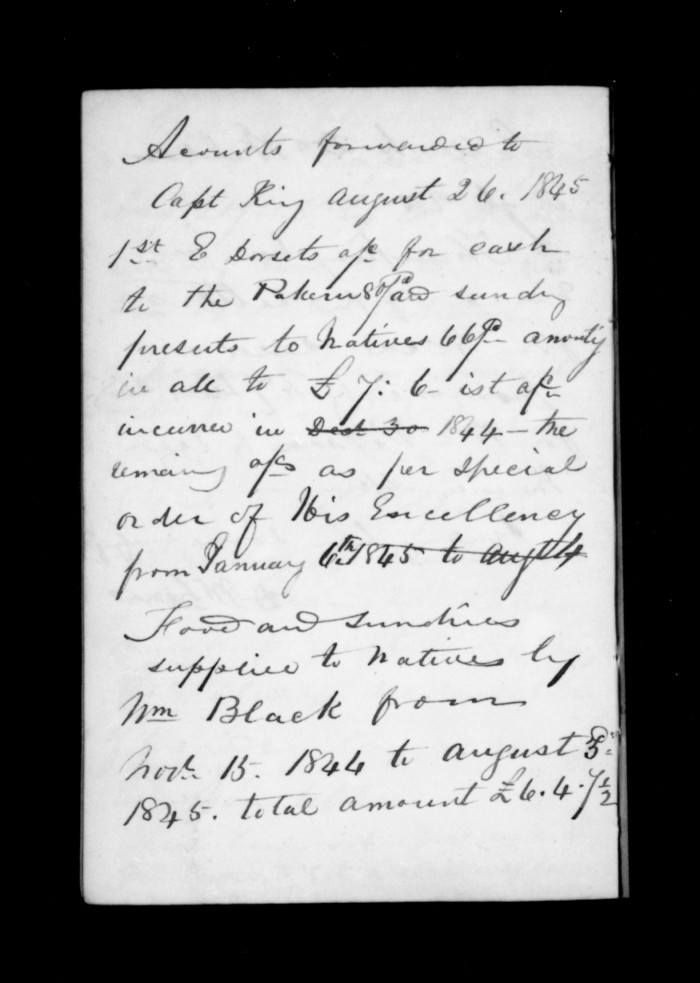 Acounts forwarded to
Capt King August 26. 1845
1st E Dorsets a/c for cash
to the and sundry
presents to Natives 66/- amonty
in all to £ 7: 6- ist a/c
incurred in Dect 30 1844 - the
remaing a/cs as per special
order of His Excellency
from January 6th 1845 to Augt 4
Food and sundries
supplied to Natives by
Wm Black from
Novr 15. 1844 to August 5
1845. total amount £6.4.7½